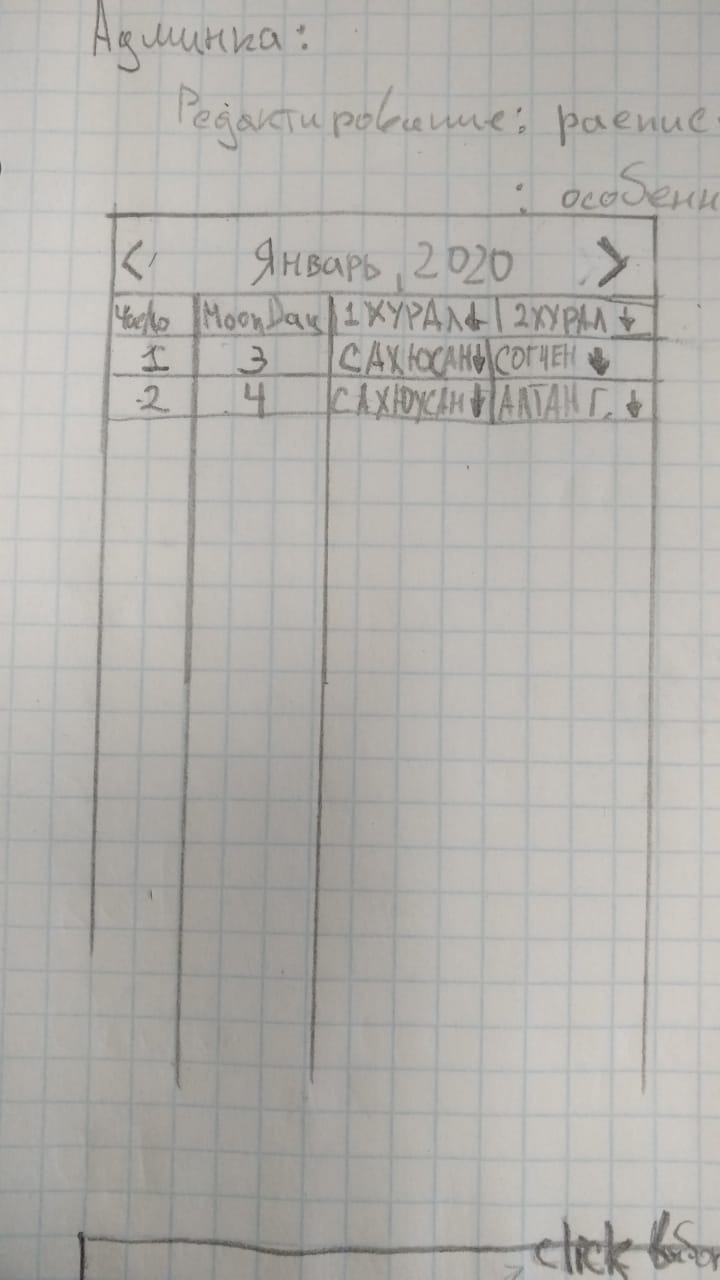 Админка:
Редактирование: распис
: особенн
< Январь, 2020 >
Число MoonDay 1 ХУРАЛ ↓ 2 ХУРАЛ ↓
1 3 САХЮСАН ↓ СОГЧЕН ↓
2 4 САХЮСАН ↓ АЛТАН Г. ↓
click выбор